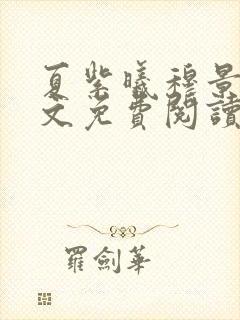 夏紫曦穆景
文免費閱讀
羅劍華